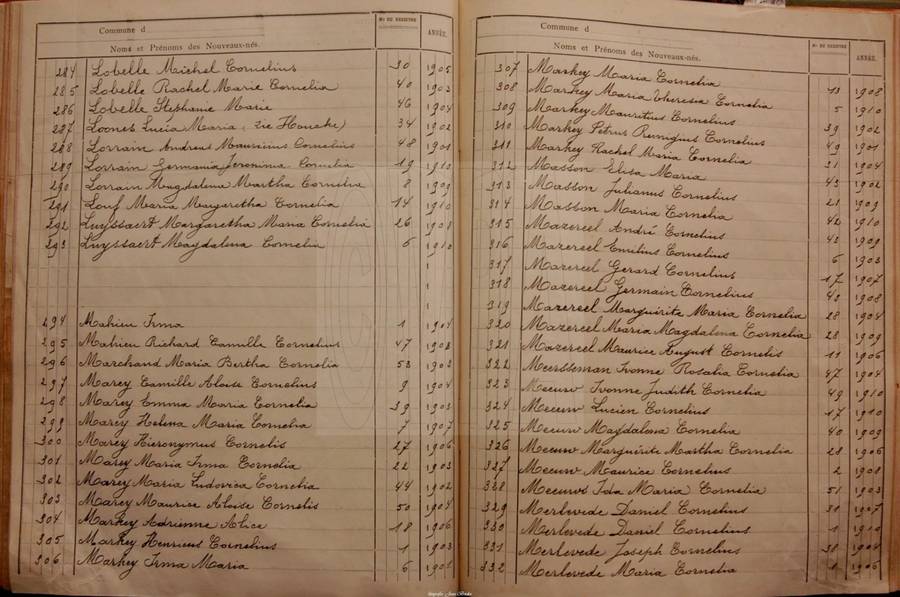 Commune d
Nos DU REGISTRE
ANNÉE.
Noms et Prénoms des Nouveaux-nés.
284 Lobelle Michel Cornelius 30 1905
285 Lobelle Rachel Marie Cornelia 40 1903
286 Lobelle Stephanie Marie 46 1904
287 Loones Lucia Maria 34 1902
288 Lorrain Andreas Mauricius Cornelius 48 1901
289 Lorrain Germania Jeronima Cornelia 19 1910
290 Lorrain Magdalena Martha Cornelia 8 1909
291 Louf Maria Margaretha Cornelia 14 1910
292 Luyssaert Margaretha Maria Cornelia 26 1908
293 Luyssaert Magdalena Cornelia 6 1910
294 Mahieu Irma 1 1904
295 Mahieu Richard Camille Cornelius 47 1908
296 Marchand Maria Bertha Cornelia 53 1903
297 Marey Camille Aloise Cornelius 9 1904
298 Marey Emma Maria Cornelia 39 1903
299 Marey Helena Maria Cornelia 7 1907
300 Marey Hieronymus Cornelis 27 1906
301 Marey Maria Irma Cornelia 22 1903
302 Marey Maria Ludovica Cornelia 44 1902
303 Marey Maurice Aloise Cornelis 50 1904
304 Markey Adrienne Alice 18 1906
305 Markey Henricus Cornelius 1 1903
306 Markey Irma Maria 6 1901
Commune d
Nos DU REGISTRE
ANNÉE.
Noms et Prénoms des Nouveaux-nés.
307 Markey Maria Cornelia 13 1908
308 Markey Maria Theresia Cornelia 5 1910
309 Markey Mauritius Cornelius 39 1902
310 Markey Petrus Remigius Cornelius 49 1901
311 Markey Rachel Maria Cornelia 31 1904
312 Masson Elisa Maria 43 1902
313 Masson Julianus Cornelius 21 1909
314 Masson Maria Cornelia 42 1910
315 Mazereel André Cornelius 43 1909
316 Mazereel Emilius Cornelius 6 1903
317 Mazereel Gerard Cornelius 17 1907
318 Mazereel Germain Cornelius 43 1908
319 Mazereel Marguirite Maria Cornelia 28 1904
320 Mazereel Maria Magdalena Cornelia 28 1909
321 Mazereel Maurice August Cornelis 11 1906
322 Meersseman Ivonne Rosalia Cornelia 47 1904
323 Meeuw Ivonne Judith Cornelia 49 1910
324 Meeuw Lucien Cornelius 17 1910
325 Meeuw Magdalena Cornelia 40 1909
326 Meeuw Marguirite Martha Cornelia 28 1906
327 Meeuw Maurice Cornelius 2 1908
328 Meeuws Ida Maria Cornelia 51 1903
329 Merlevede Daniel Cornelius 31 1907
330 Merlevede Daniel Cornelius 1 1910
331 Merlevede Joseph Cornelius 38 1904
332 Merlevede Maria Cornelia 1 1906